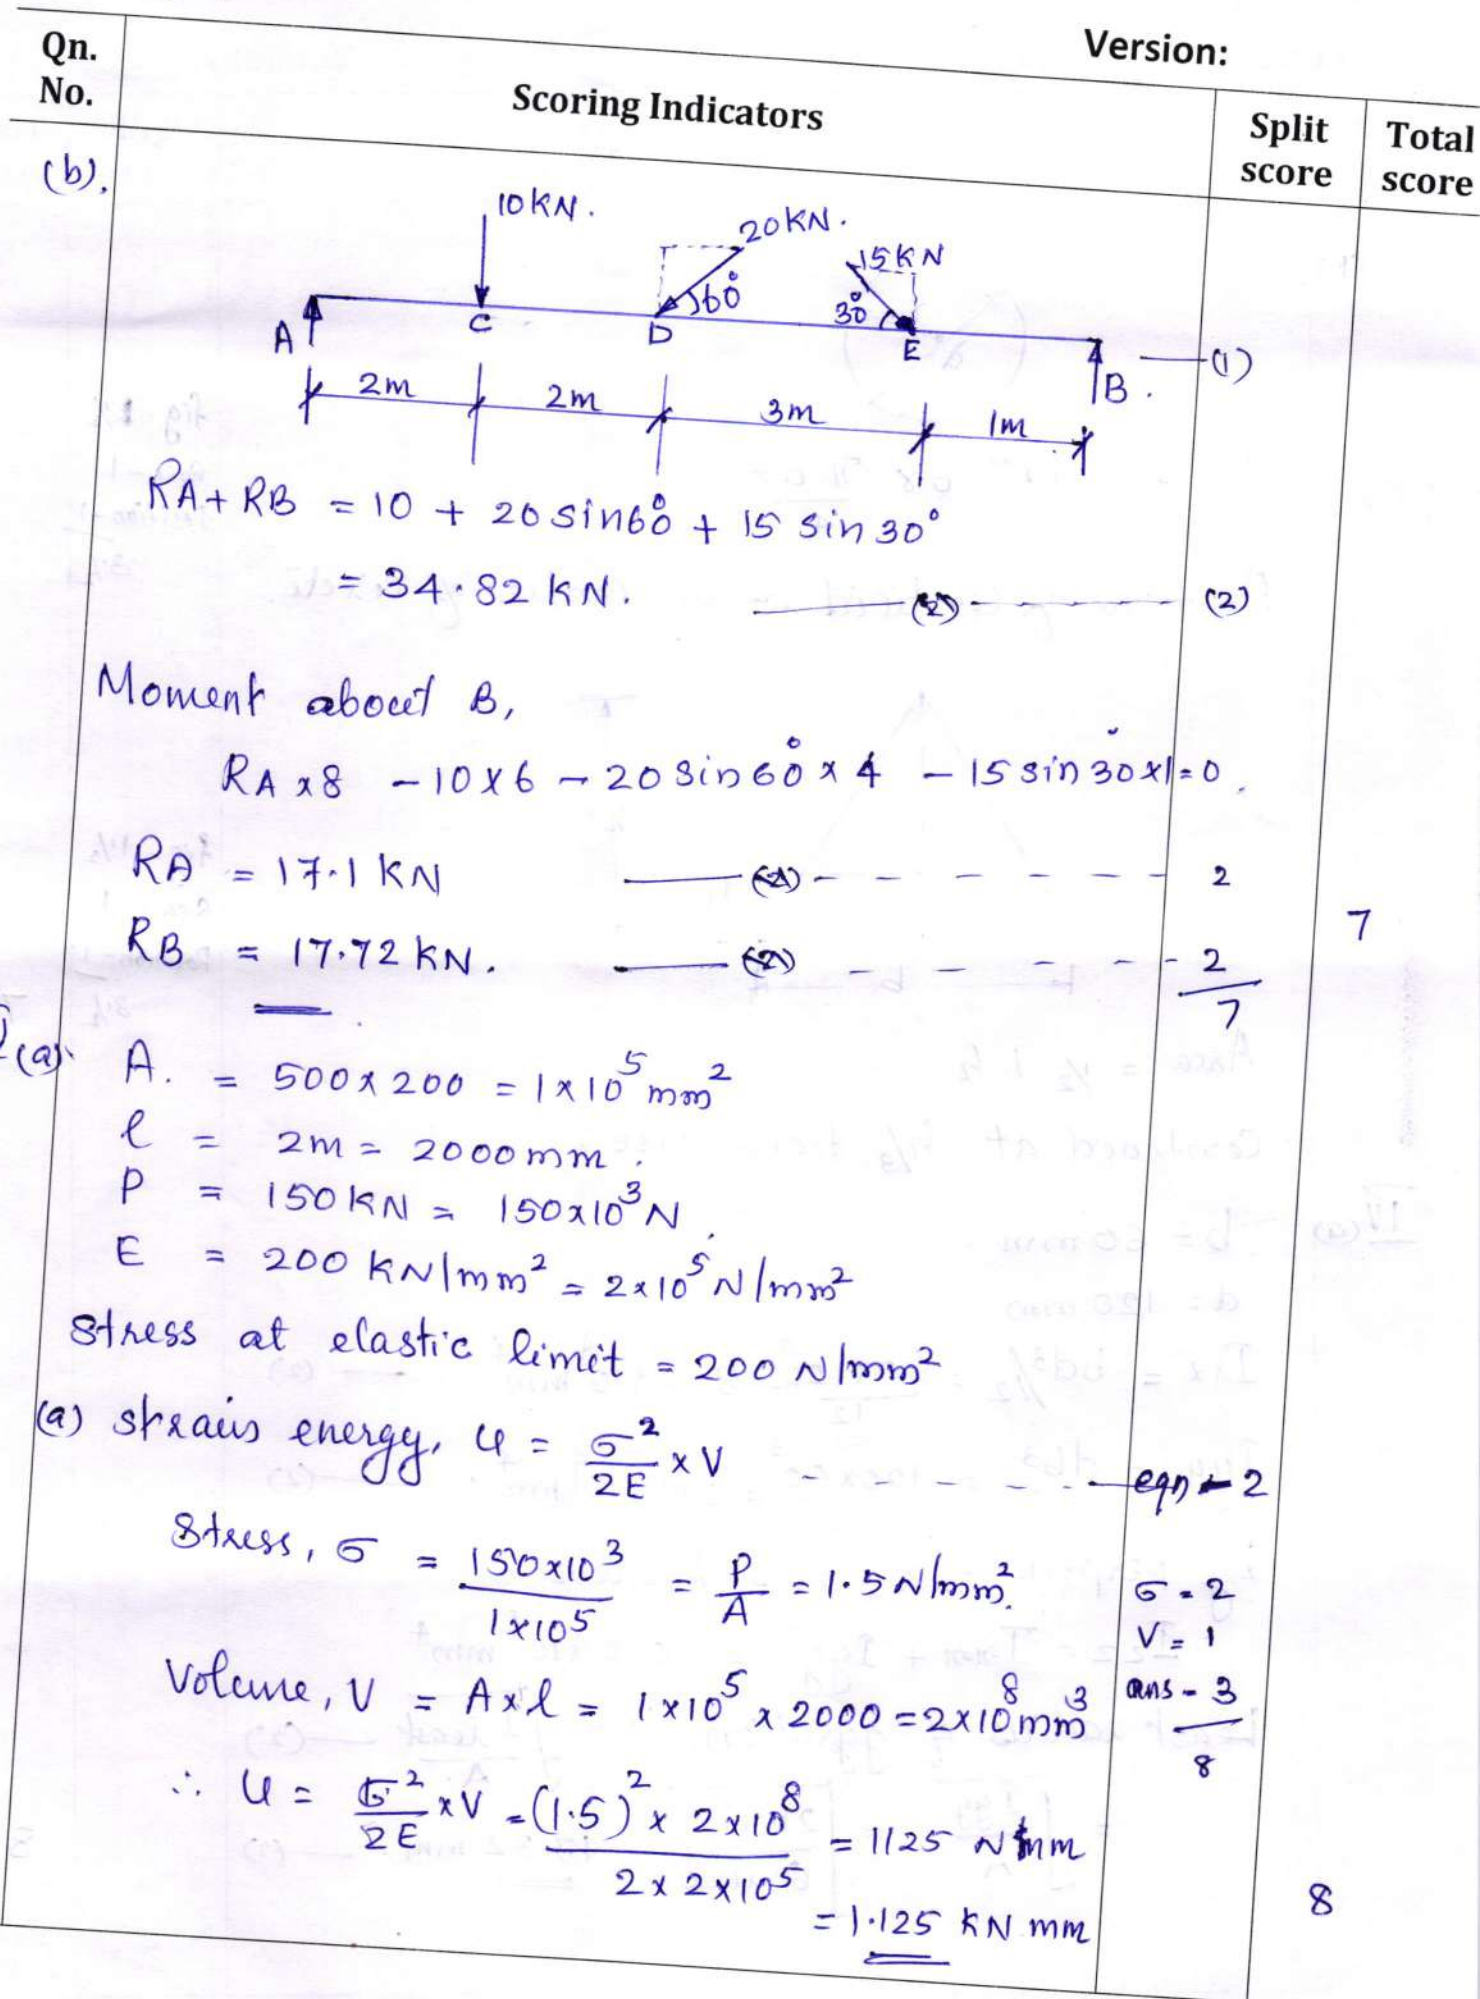 Version:
Qn. No.
Scoring Indicators
Split score
Total score
(b).
10KN.
20KN.
15KN
60°
30°
A
C
D
E
B.
(1)
2m
2m
3m
1m
RA + RB = 10 + 20 sin60° + 15 sin 30°
= 34.82 KN. (2) (2)
Moment about B,
RA x8 - 10x6 - 20 sin60° x 4 - 15 sin 30° x1 = 0.
RA = 17.1 KN 2
7
RB = 17.72 KN. (2) 2
7
(a). A. = 500 x 200 = 1 x 10^5 mm^2
l = 2m = 2000 mm.
P = 150 KN = 150x10^3 N.
E = 200 KN/mm^2 = 2x10^5 N/mm^2
Stress at elastic limit = 200 N/mm^2
(a) Strain energy, U = σ^2/2E x V eqn - 2
Stress, σ = 150x10^3/1x10^5 = P/A = 1.5 N/mm^2. σ - 2
V = 1
Volume, V = A x l = 1x10^5 x 2000 = 2x10^8 mm^3 ans - 3
8
∴ U = σ^2/2E x V = (1.5)^2 x 2x10^8/2 x 2x10^5 = 1125 N mm
8
= 1.125 KN mm